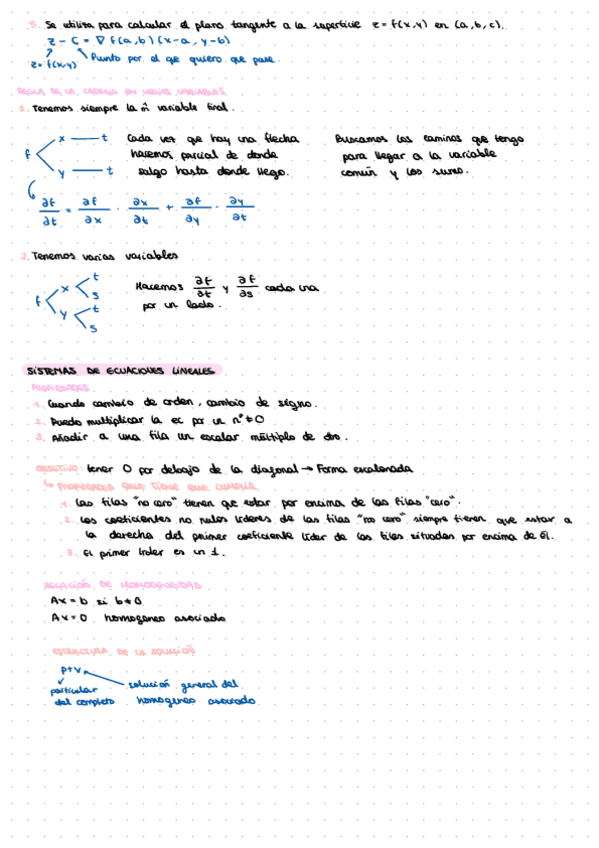 5. Se utiliza para calcular el plano tangente a la superficie z = f(x,y) en (a,b,c).
z - c = ∇ f(a,b) (x-a, y-b)
z = f(x,y) Punto por el que quiero que pase.
REGLA DE LA CADENA EN VARIAS VARIABLES
1. Tenemos siempre la m̃ variable final.
f x t Cada vez que hay una flecha Buscamos los caminos que tengo
hacemos parcial de donde para llegar a la variable
y t salgo hasta donde llego. común y los sumo.
∂f/∂t = ∂f/∂x · ∂x/∂t + ∂f/∂y · ∂y/∂t
2. Tenemos varias variables
f x t s y t s
Hacemos ∂f/∂t y ∂f/∂s cada una
por un lado.
SISTEMAS DE ECUACIONES LINEALES
PROPIEDADES
1. Cuando cambio de orden, cambio de signo.
2. Puedo multiplicar la ec por un nº ≠ 0
3. Añadir a una fila un escalar múltiplo de otro.
OBJETIVO: tener 0 por debajo de la diagonal → Forma escalonada
↳ PROPIEDADES QUE TIENE QUE CUMPLIR
1. Las filas "no cero" tienen que estar por encima de las filas "cero".
2. Los coeficientes no nulos líderes de las filas "no cero" siempre tienen que estar a
la derecha del primer coeficiente líder de las filas situadas por encima de él.
3. El primer líder es un 1.
RELACIÓN DE HOMOGENEIDAD
Ax = b si b ≠ 0
Ax = 0 homogeneo asociado
ESTRUCTURA DE LA SOLUCIÓN
p+v
particular solución general del
del completo homogeneo asociado